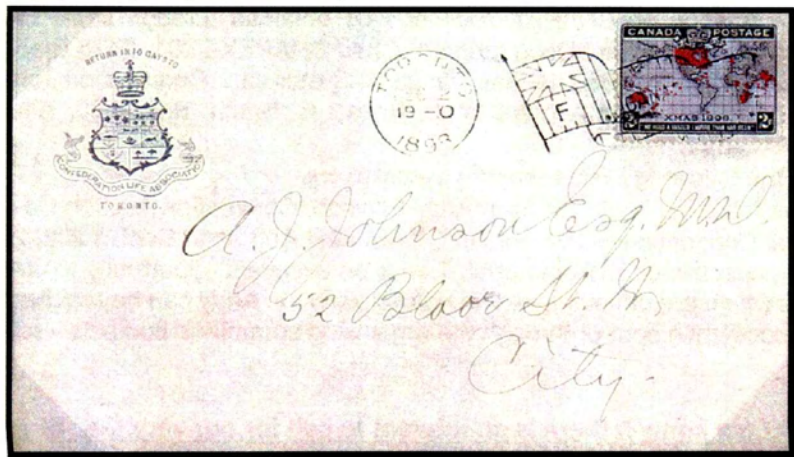 RETURN IN 10 DAYS TO
CONFEDERATION LIFE ASSOCIATION
TORONTO.
TORONTO
19-0
1898
F
CANADA POSTAGE
XMAS 1898
2 "WE HOLD A VASTER EMPIRE THAN HAS BEEN" 2
A. J. Johnson Esq. M.D.
52 Bloor St. W
City.